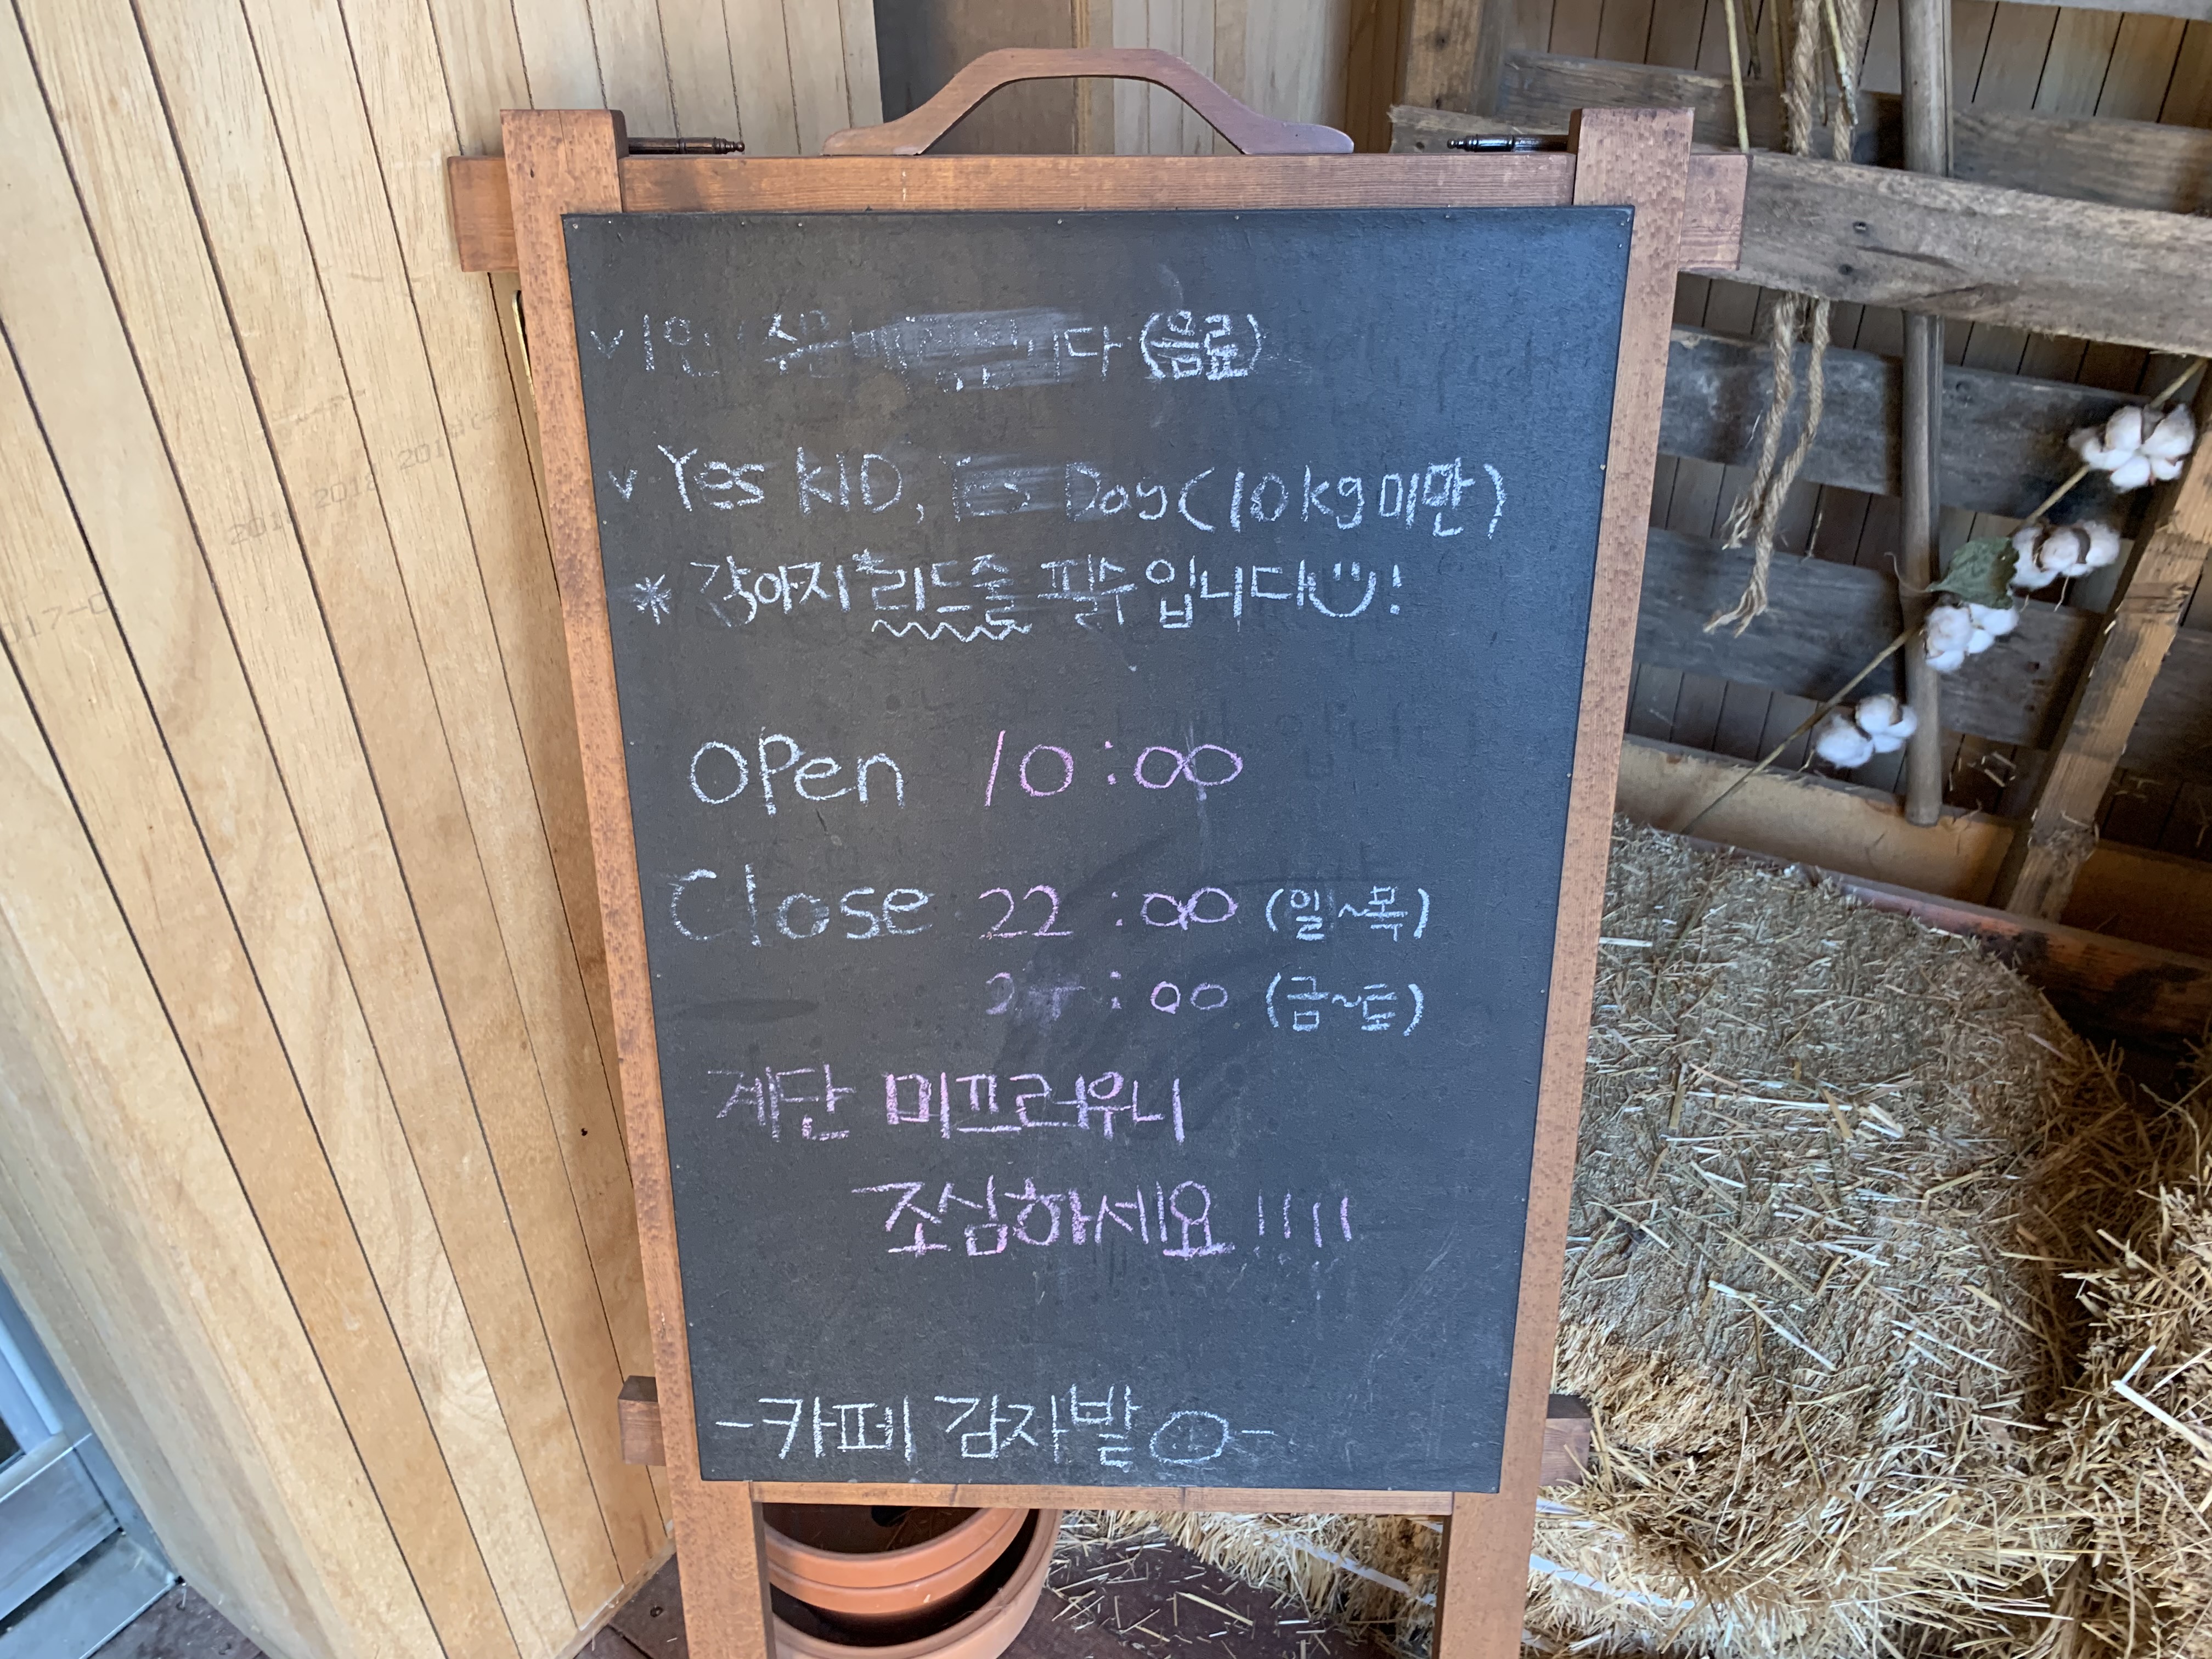 v 1인 (음료)
v Yes KID, Yes Dog (10kg미만)
* 강아지 *리드줄 필수입니다!
Open 10:00
Close 22:00 (일~목)
:00 (금~토)
계단 미끄러우니
조심하세요!!!!
-카페 감자밭-